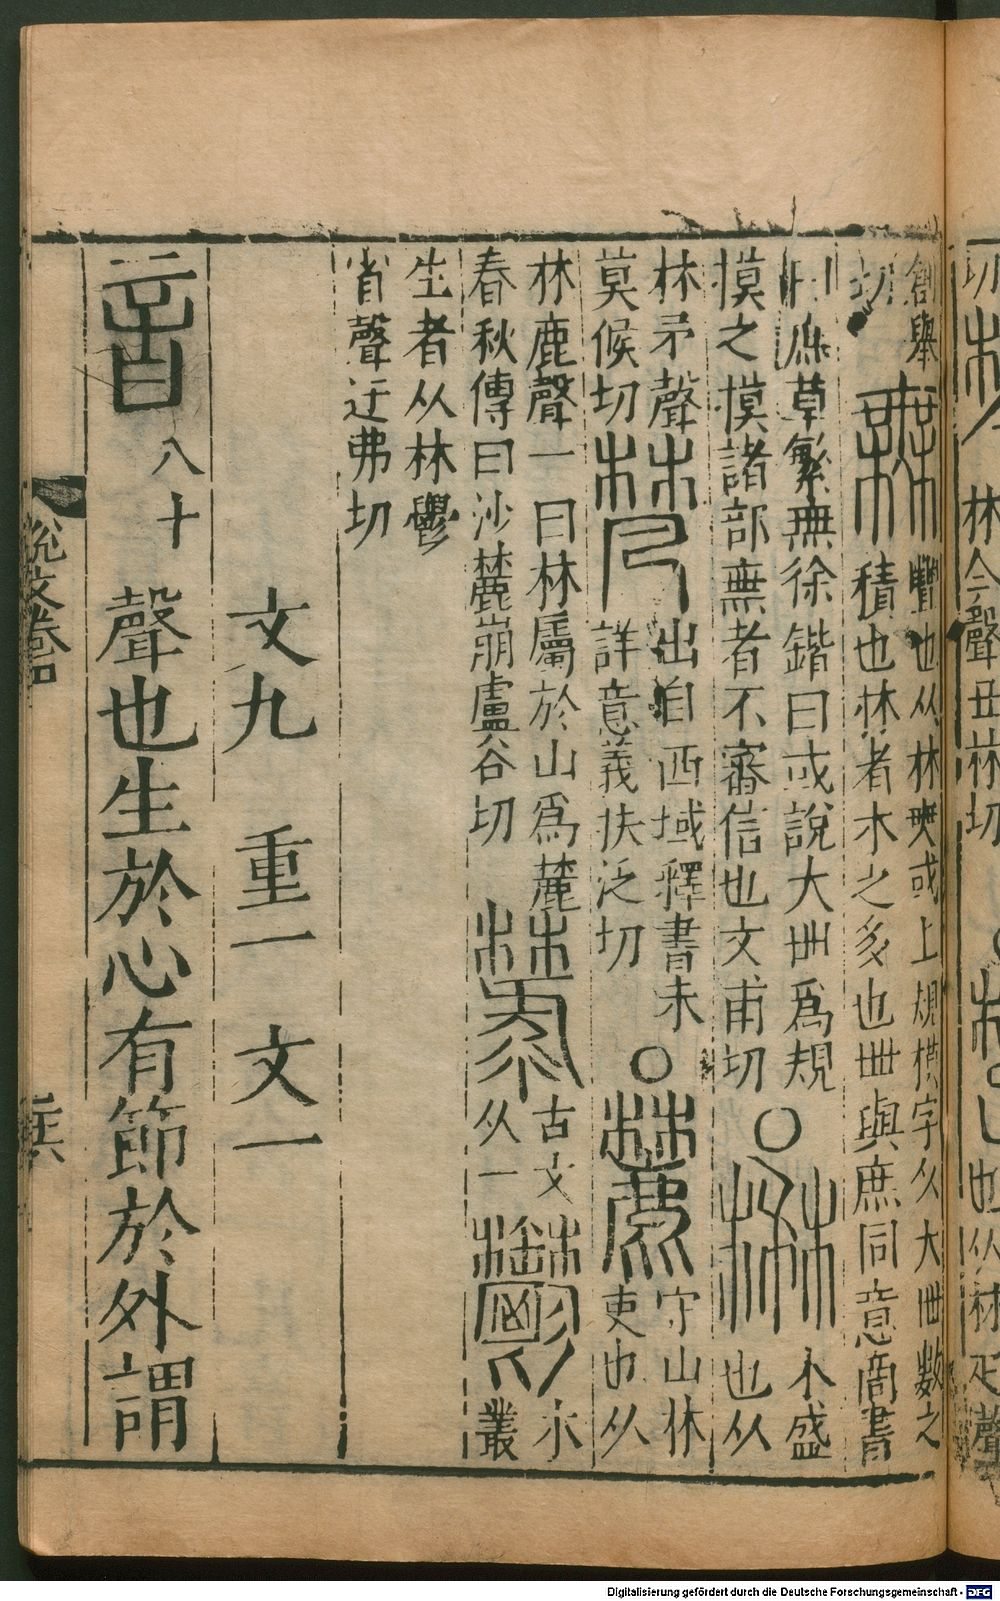 創舉 𣞤 豐也从林𡘲或上規模字从大𠦜數之
積也林者木之多也𠦜與庶同意商書
切
曰庶草繁無徐鍇曰或說大𠦜爲規
模之模諸部無者不審信也文甫切 ○ 楙 木盛
也从
林矛聲
莫候切 梵 出自西域釋書未
詳意義扶泛切 ○ 麓 守山林
吏也从
林鹿聲一曰林屬於山爲麓
春秋傳曰沙麓崩盧谷切 𣚦 古文
从 一 鬱 木
叢
生者从林鬱
省聲迂弗切
文九 重一 文一
音 八十 聲也生於心有節於外謂
說文卷四
Digitalisierung gefördert durch die Deutsche Forschungsgemeinschaft - DFG